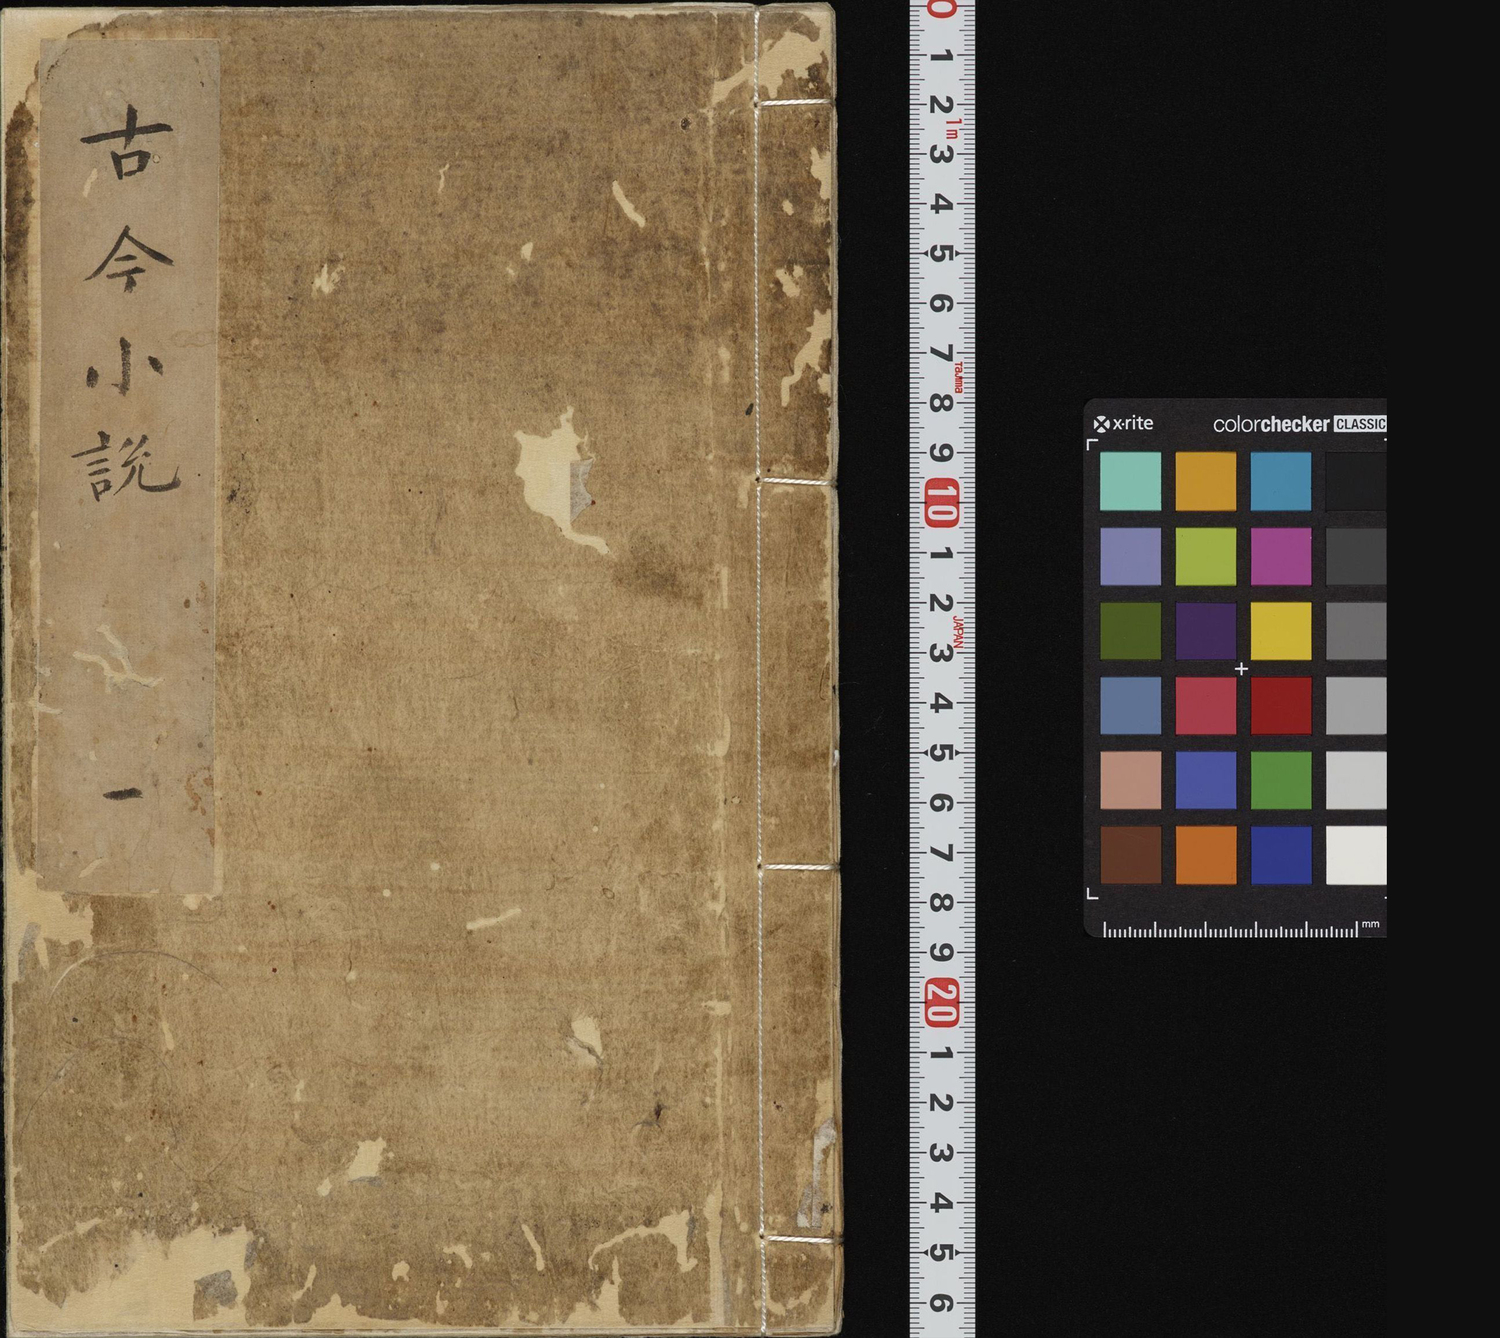 古今小説
一
0
1
2
1m
3
4
5
6
7
Tajima
8
9
10
1
2
JAPAN
3
4
5
6
7
8
9
20
1
2
3
4
5
6
x·rite
colorchecker CLASSIC
mm